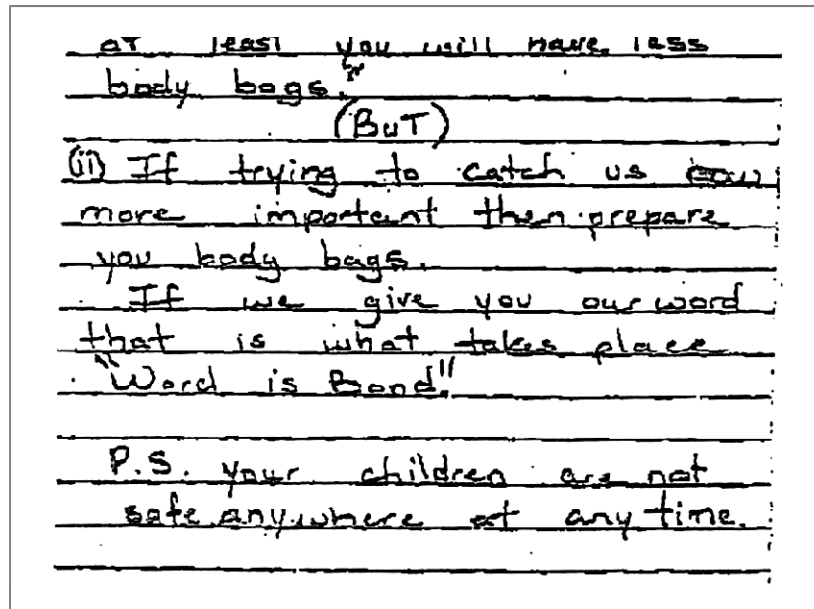 at least you will have less
body bags."
(BuT)
(ii) If trying to catch us now
more important then prepare
you body bags.
If we give you our word
that is what takes place
"Word is Bond"
P.S. Your children are not
safe anywhere at any time.